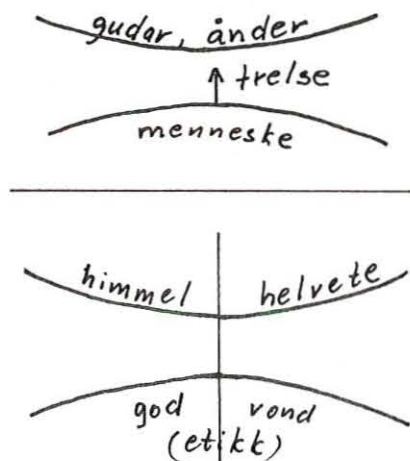 gudar, ånder
trelse
menneske
himmel helvete
god vond
(etikk)